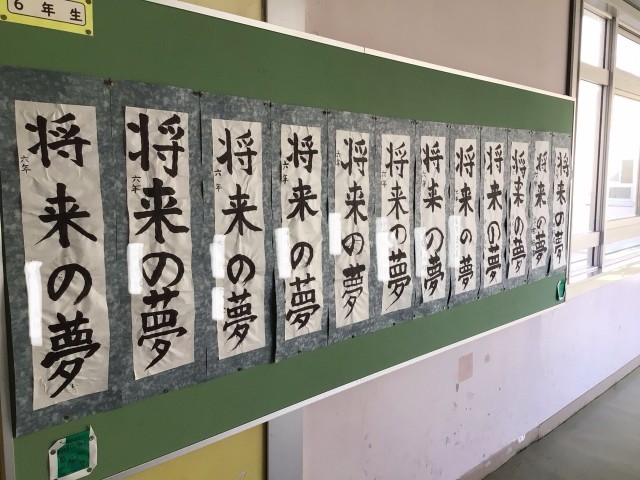 6年生
将来の夢
六年
将来の夢
六年
将来の夢
六年
将来の夢
六年
将来の夢
六年
将来の夢
六年
将来の夢
六年
将来の夢
六年
将来の夢
将来の夢
将来の夢
将来の夢